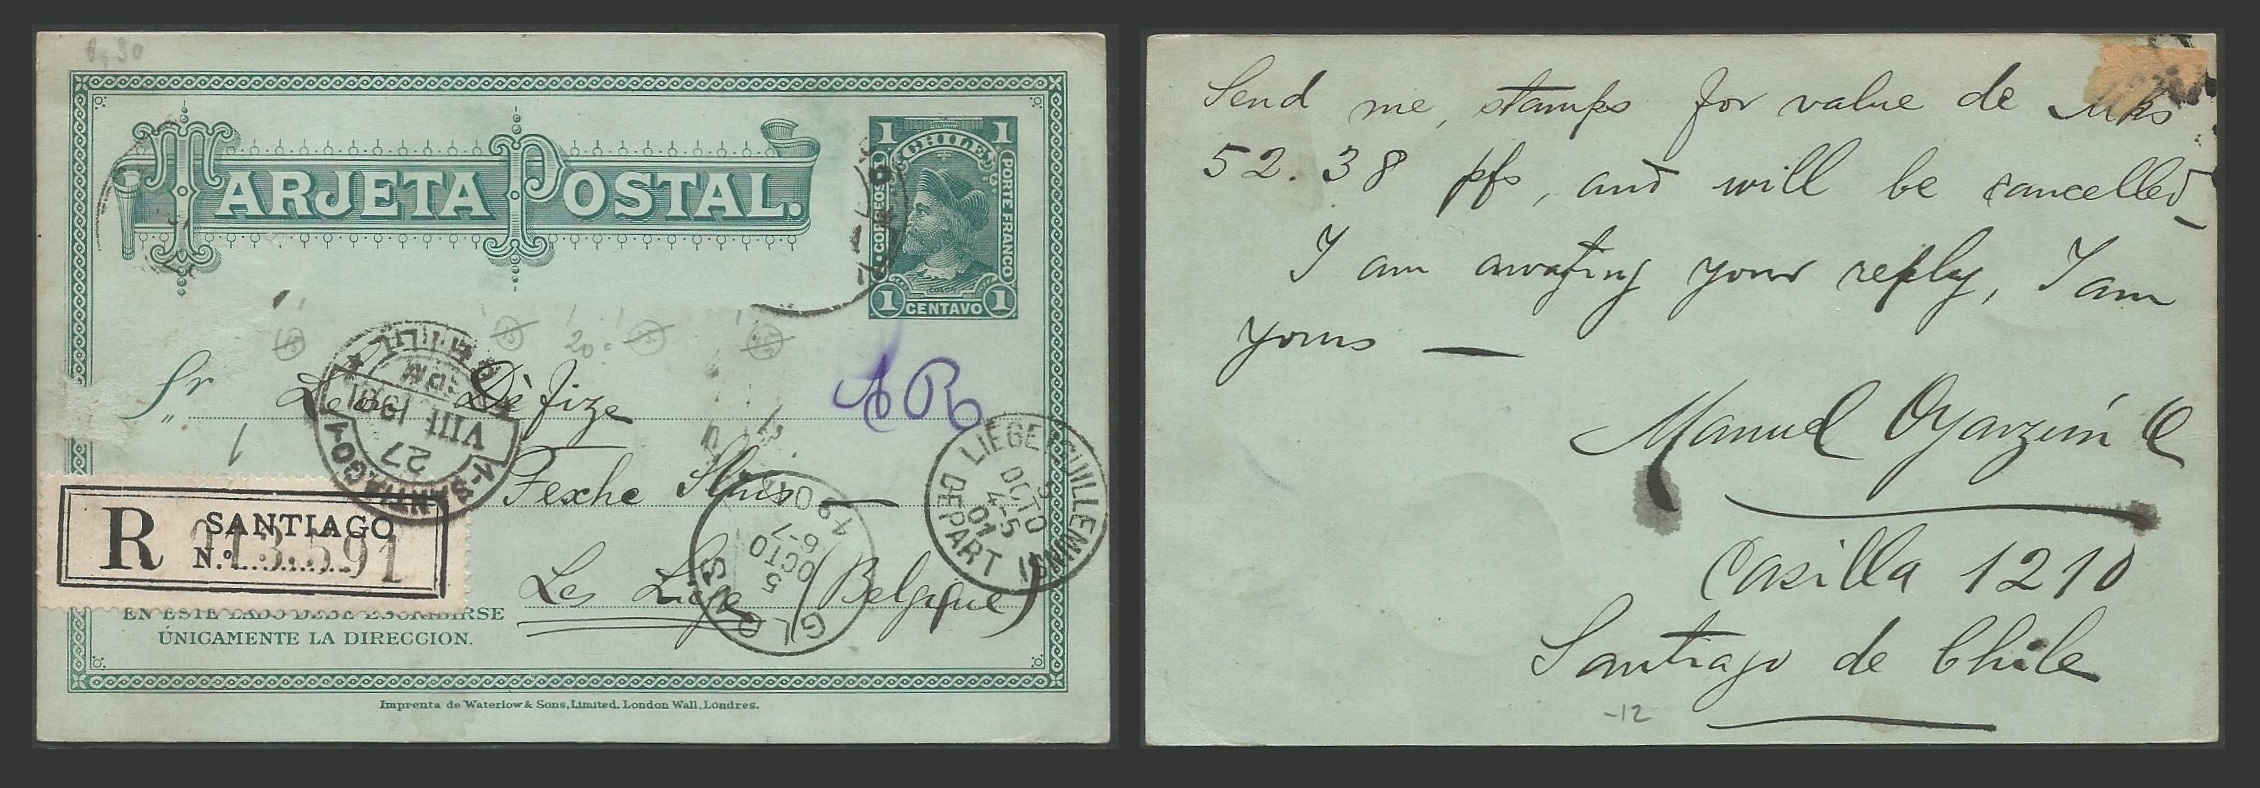 8,30
TARJETA POSTAL.
1 1
CHILE
CORREOS DE
PORTE FRANCO
COLON
1 CENTAVO 1
Sr
Leon Dèfize
AR
Fexhe Slins
Les Liége (Belgique)
1-SANTIAGO-1
27
VIII 1901
PM
CHILE
LIÉGE (GUILLEMINS)
5
OCTO
4-5
01
DEPART
GLONS
5
OCTO
6-7
01
R SANTIAGO
N.º
EN ESTE LADO DEBE ESCRIBIRSE
ÚNICAMENTE LA DIRECCION.
Imprenta de Waterlow & Sons, Limited. London Wall, Londres.
Send me, stamps for value de Mks
52.38 pfs, and will be cancelled
I am awating your reply, I am
yours —
Manuel Oyarzún O
Casilla 1210
Santiago de Chile
-12